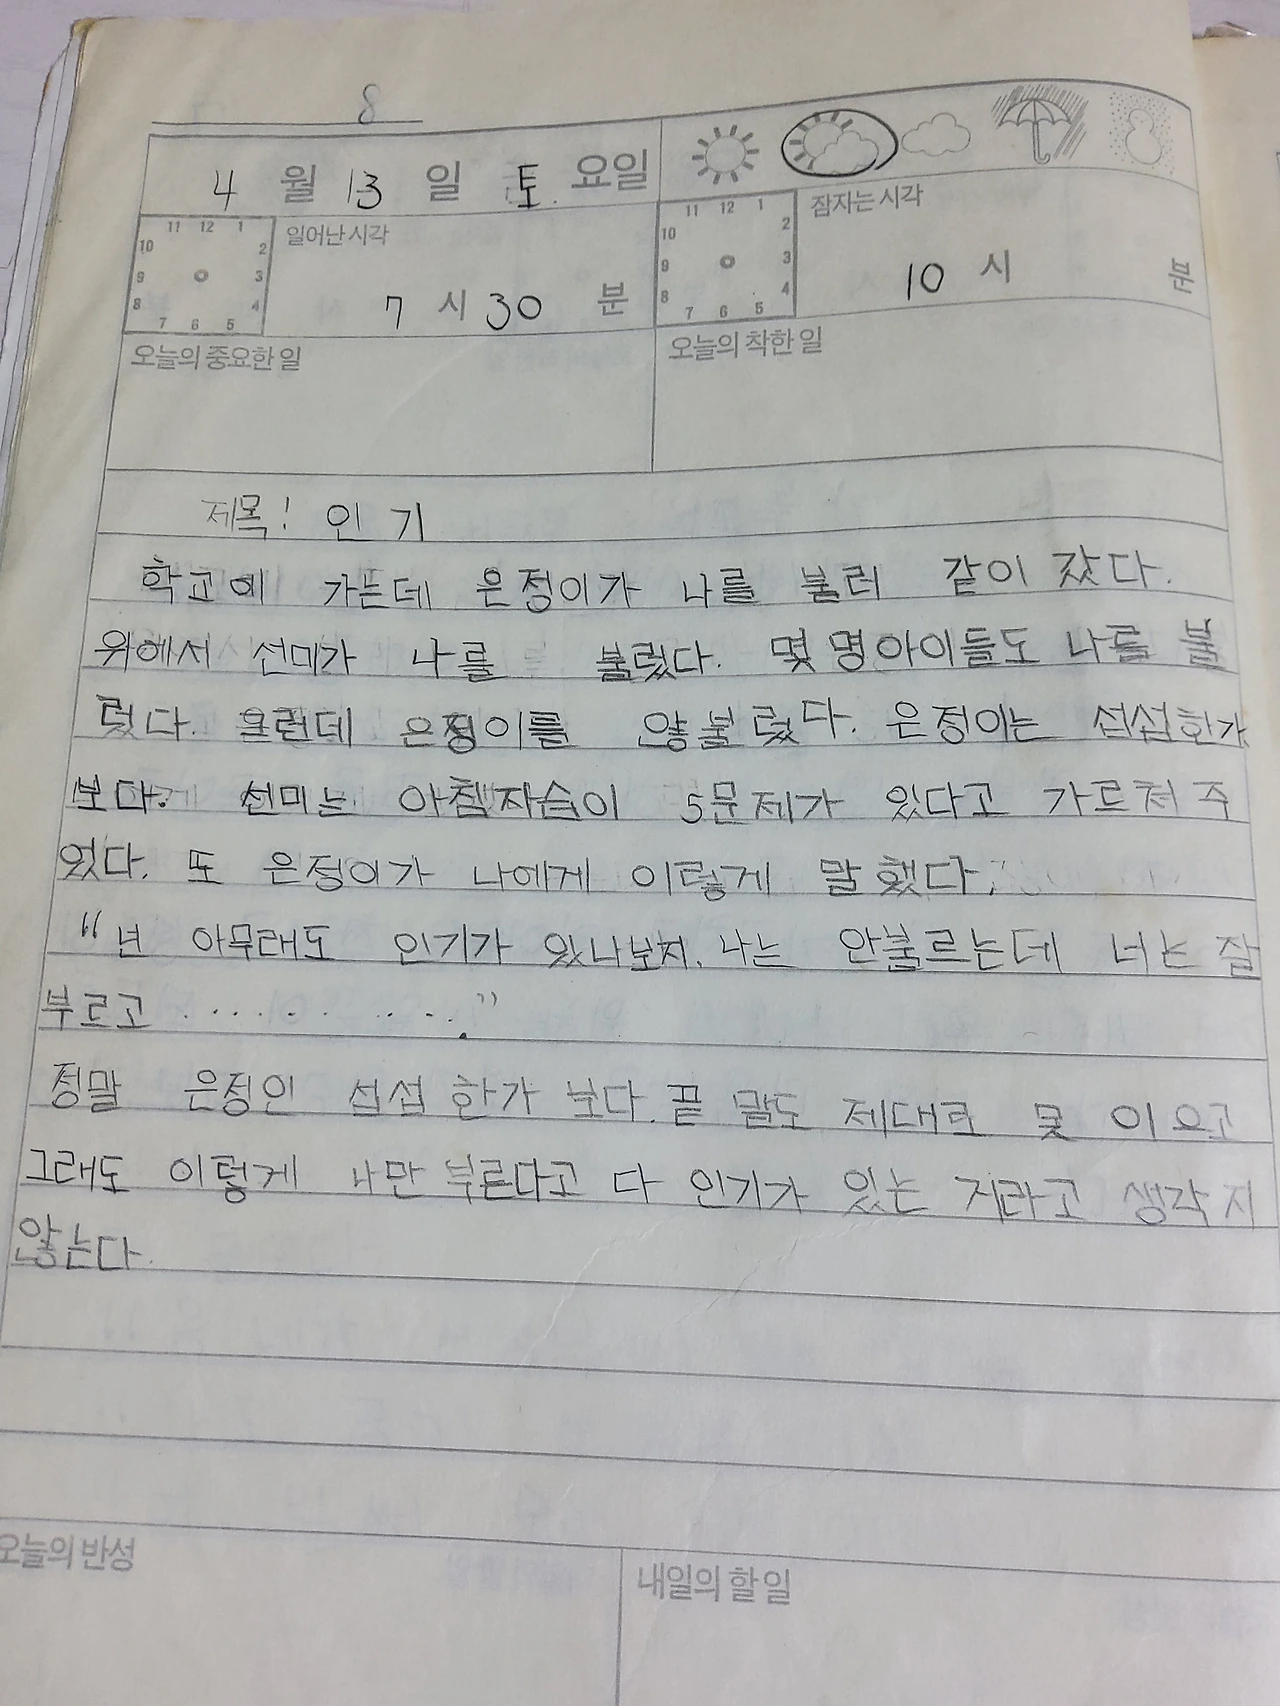 8
4 월 13 일 토 요일
11 12 1 2 3 4 5 6 7 8 9 10
일어난 시각
7 시 30 분
11 12 1 2 3 4 5 6 7 8 9 10
잠자는 시각
10 시 분
오늘의 중요한 일
오늘의 착한 일
제목! 인기
학교에 가는데 은정이가 나를 불러 같이 갔다.
위에서 선미가 나를 불렀다. 몇 명아이들도 나를 불
렀다. 그런데 은정이를 않불렀다. 은정이는 섭섭한가
보다. 선미는 아침자습이 5문제가 있다고 가르쳐 주
었다. 또 은정이가 나에게 이렇게 말했다.
"넌 아무래도 인기가 있나보지. 나는 안불르는데 너는 잘
부르고 ..........."
정말 은정인 섭섭 한가 보다. 끝 말도 제대로 못 이으고
그래도 이렇게 나만 부른다고 다 인기가 있는 거라고 생각지
않는다.
오늘의 반성
내일의 할 일